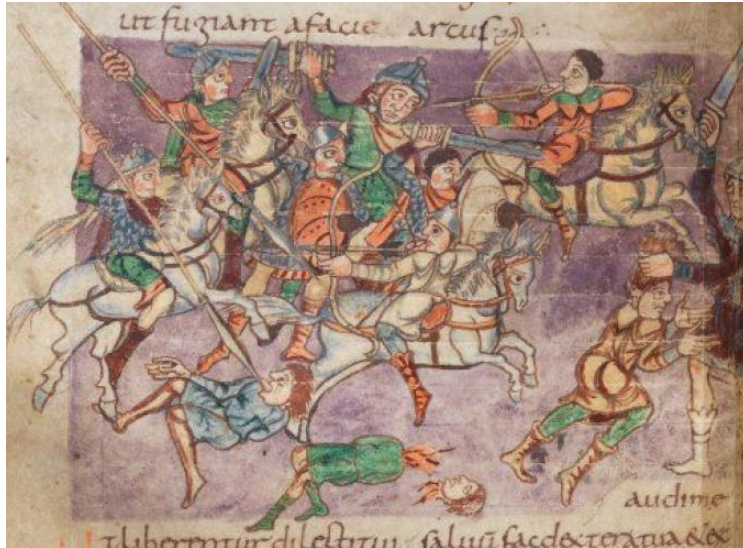 ut fugiant afacie arcus
audime
tliberentur dilectitui salvũ fac dextera tua & ex